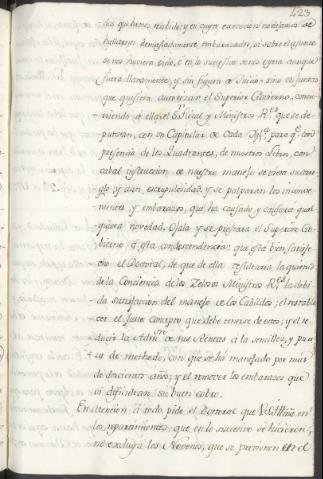 423
hallarnos demasiadamente embarazados, si sobre el asunto
se nos huviera oido, o en lo sucesivo se nos oyera aunque
fuera llanamente, y sin figura de Juicio: sino en puntos
que quisiera autorizar el Superior Govierno, concu-
rriendo a ella el Sr. Fiscal, y Ministros Rs. que se di-
putaran, con un Capitular de Cada Igla. para q. con
presencia de los Quadrantes, de nuestros Libros, con
cabal instruccion de nuestro manejo se viera su arre-
glo y aun, escrupulosidad, y se palparan los incom-
venientes, y embarazos, que ha causado, y causará qual-
quiera novedad. Ojala y se prestara el Superior Go-
bierno á esta condescendencia: que está bien satisfe-
cho el Doctoral, de que de ella resultaria la quietud
de la Conciencia de los Zelosos Ministros Rs. la debi-
da satisfaccion del manejo de los Cabildos; el estable-
cer el justo concepto que debe tenerse de estos; y el re-
ducir la Admon. de sus Rentas a la sencilles, y pure-
za de methodo, con que se ha manejado por mas
de doscientos años; y el remover los embarazos que
dificultan su buen cobro.
En atencion á todo, pide el Doctoral que
los repartimientos, que en lo sucesivo se hicieren,
no excluya los Novenos, que se previenen en el